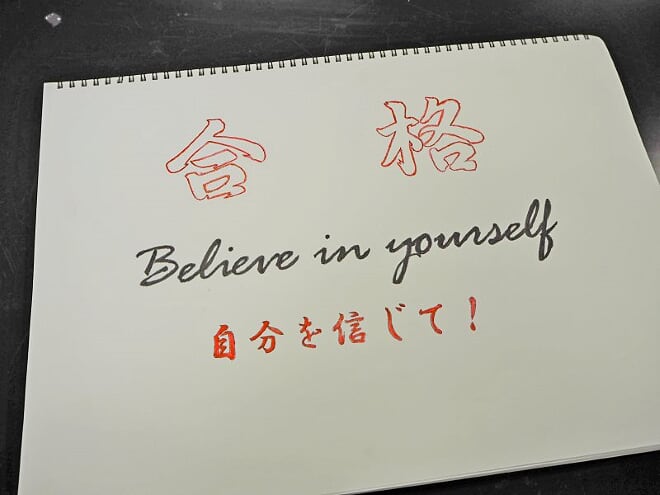 合格
Believe in yourself
自分を信じて！